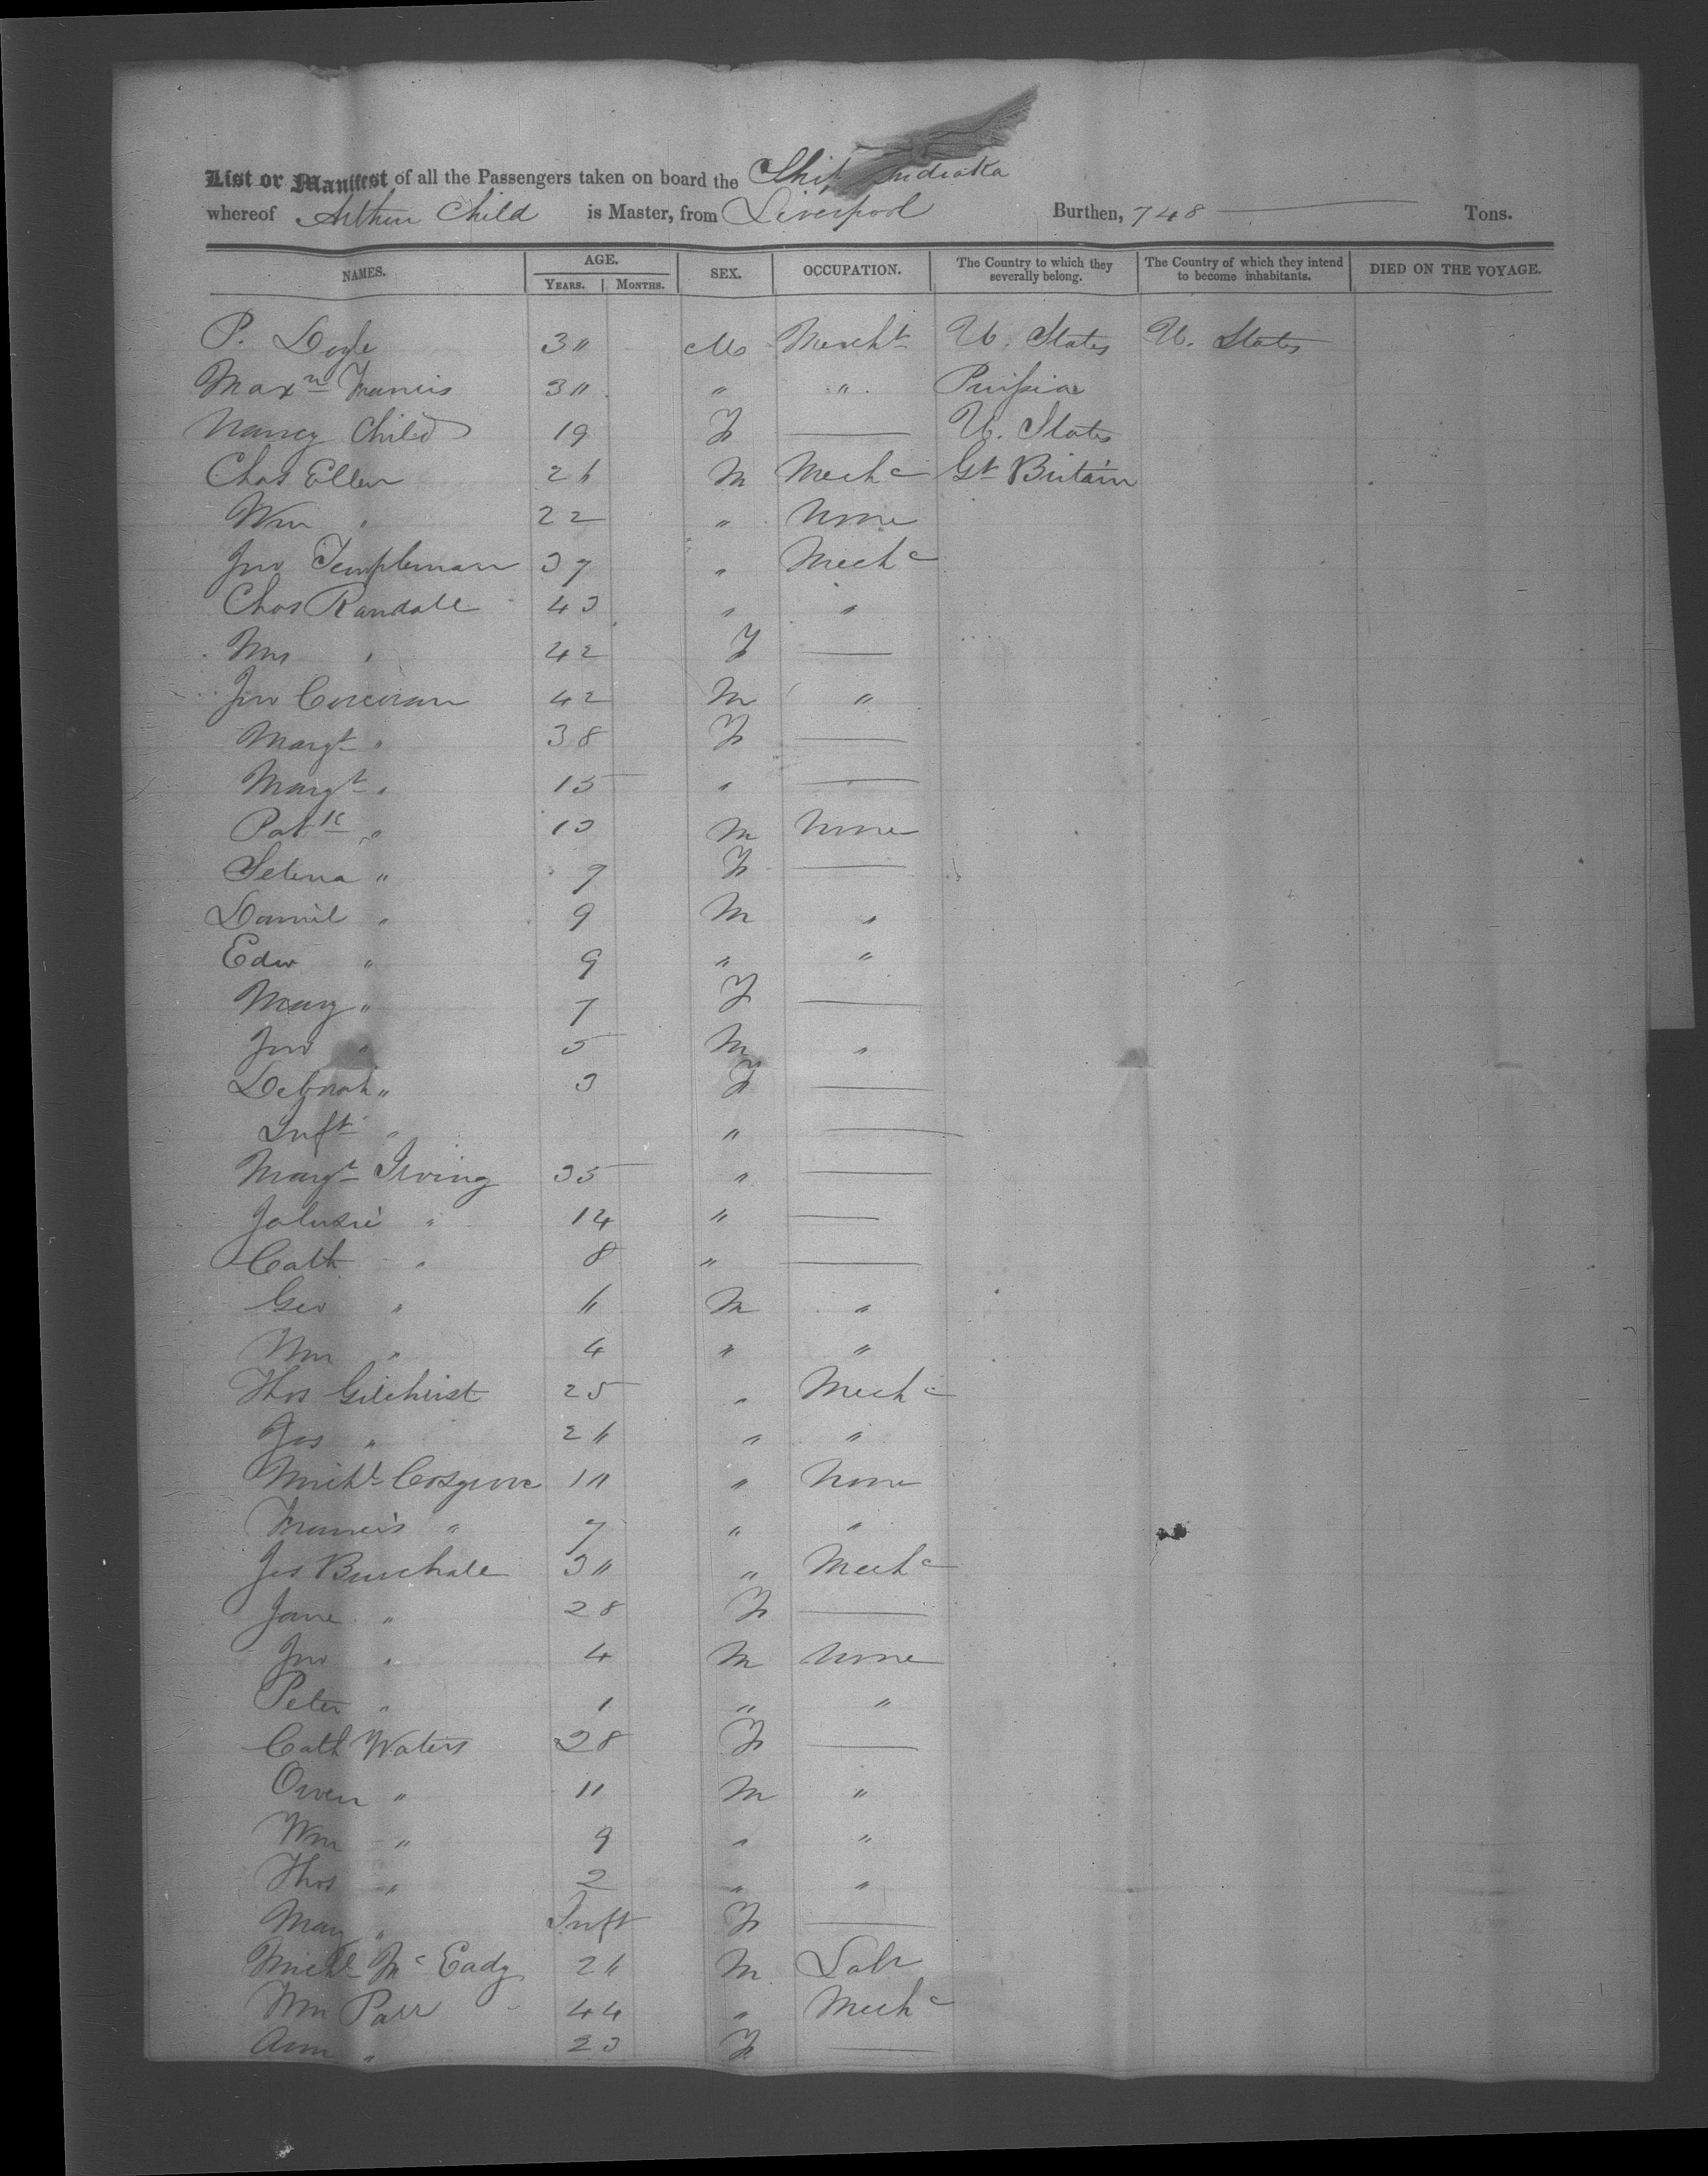 List or Manifest of all the Passengers taken on board the Ship Indiaka
whereof Arthur Child is Master, from Liverpool Burthen, 748 Tons.
NAMES. AGE. YEARS. MONTHS. SEX. OCCUPATION. The Country to which they severally belong. The Country of which they intend to become inhabitants. DIED ON THE VOYAGE.
P. Doyle 30 M Mercht U. States U. States
Maxn Francis 30 " " Prussia
Nancy Child 19 F — U. States
Chas Ellen 26 M Mechc Gt Britain
Wm " 22 " None
Jno Templeman 37 " Mechc
Chas Randall 43 " "
Mrs " 42 F —
Jno Corcoran 42 M "
Margt " 38 F —
Margt " 15 " —
Patk " 13 M None
Selena " 9 F —
Daniel " 9 M "
Edw " 9 " "
Mary " 7 F —
Jno " 5 M "
Deborah " 3 F —
Inft " " —
Margt Irving 35 " —
" 14 " —
Cath " 8 " —
Geo " 6 M "
Wm " 4 " "
Thos Gilchrist 25 " Mechc
Jas " 26 " "
Michl Cosgrove 10 " None
Francis " 7 " "
Jas Burchall 30 " Mechc
Jane " 28 F —
Jno " 4 M None
Peter " 1 " "
Cath Waters 28 F —
Owen " 11 M "
Wm " 9 " "
Thos " 2 " "
Mary " Inft F —
Michl McEady 26 M Labr
Wm Parr 44 " Mechc
Ann " 23 F —